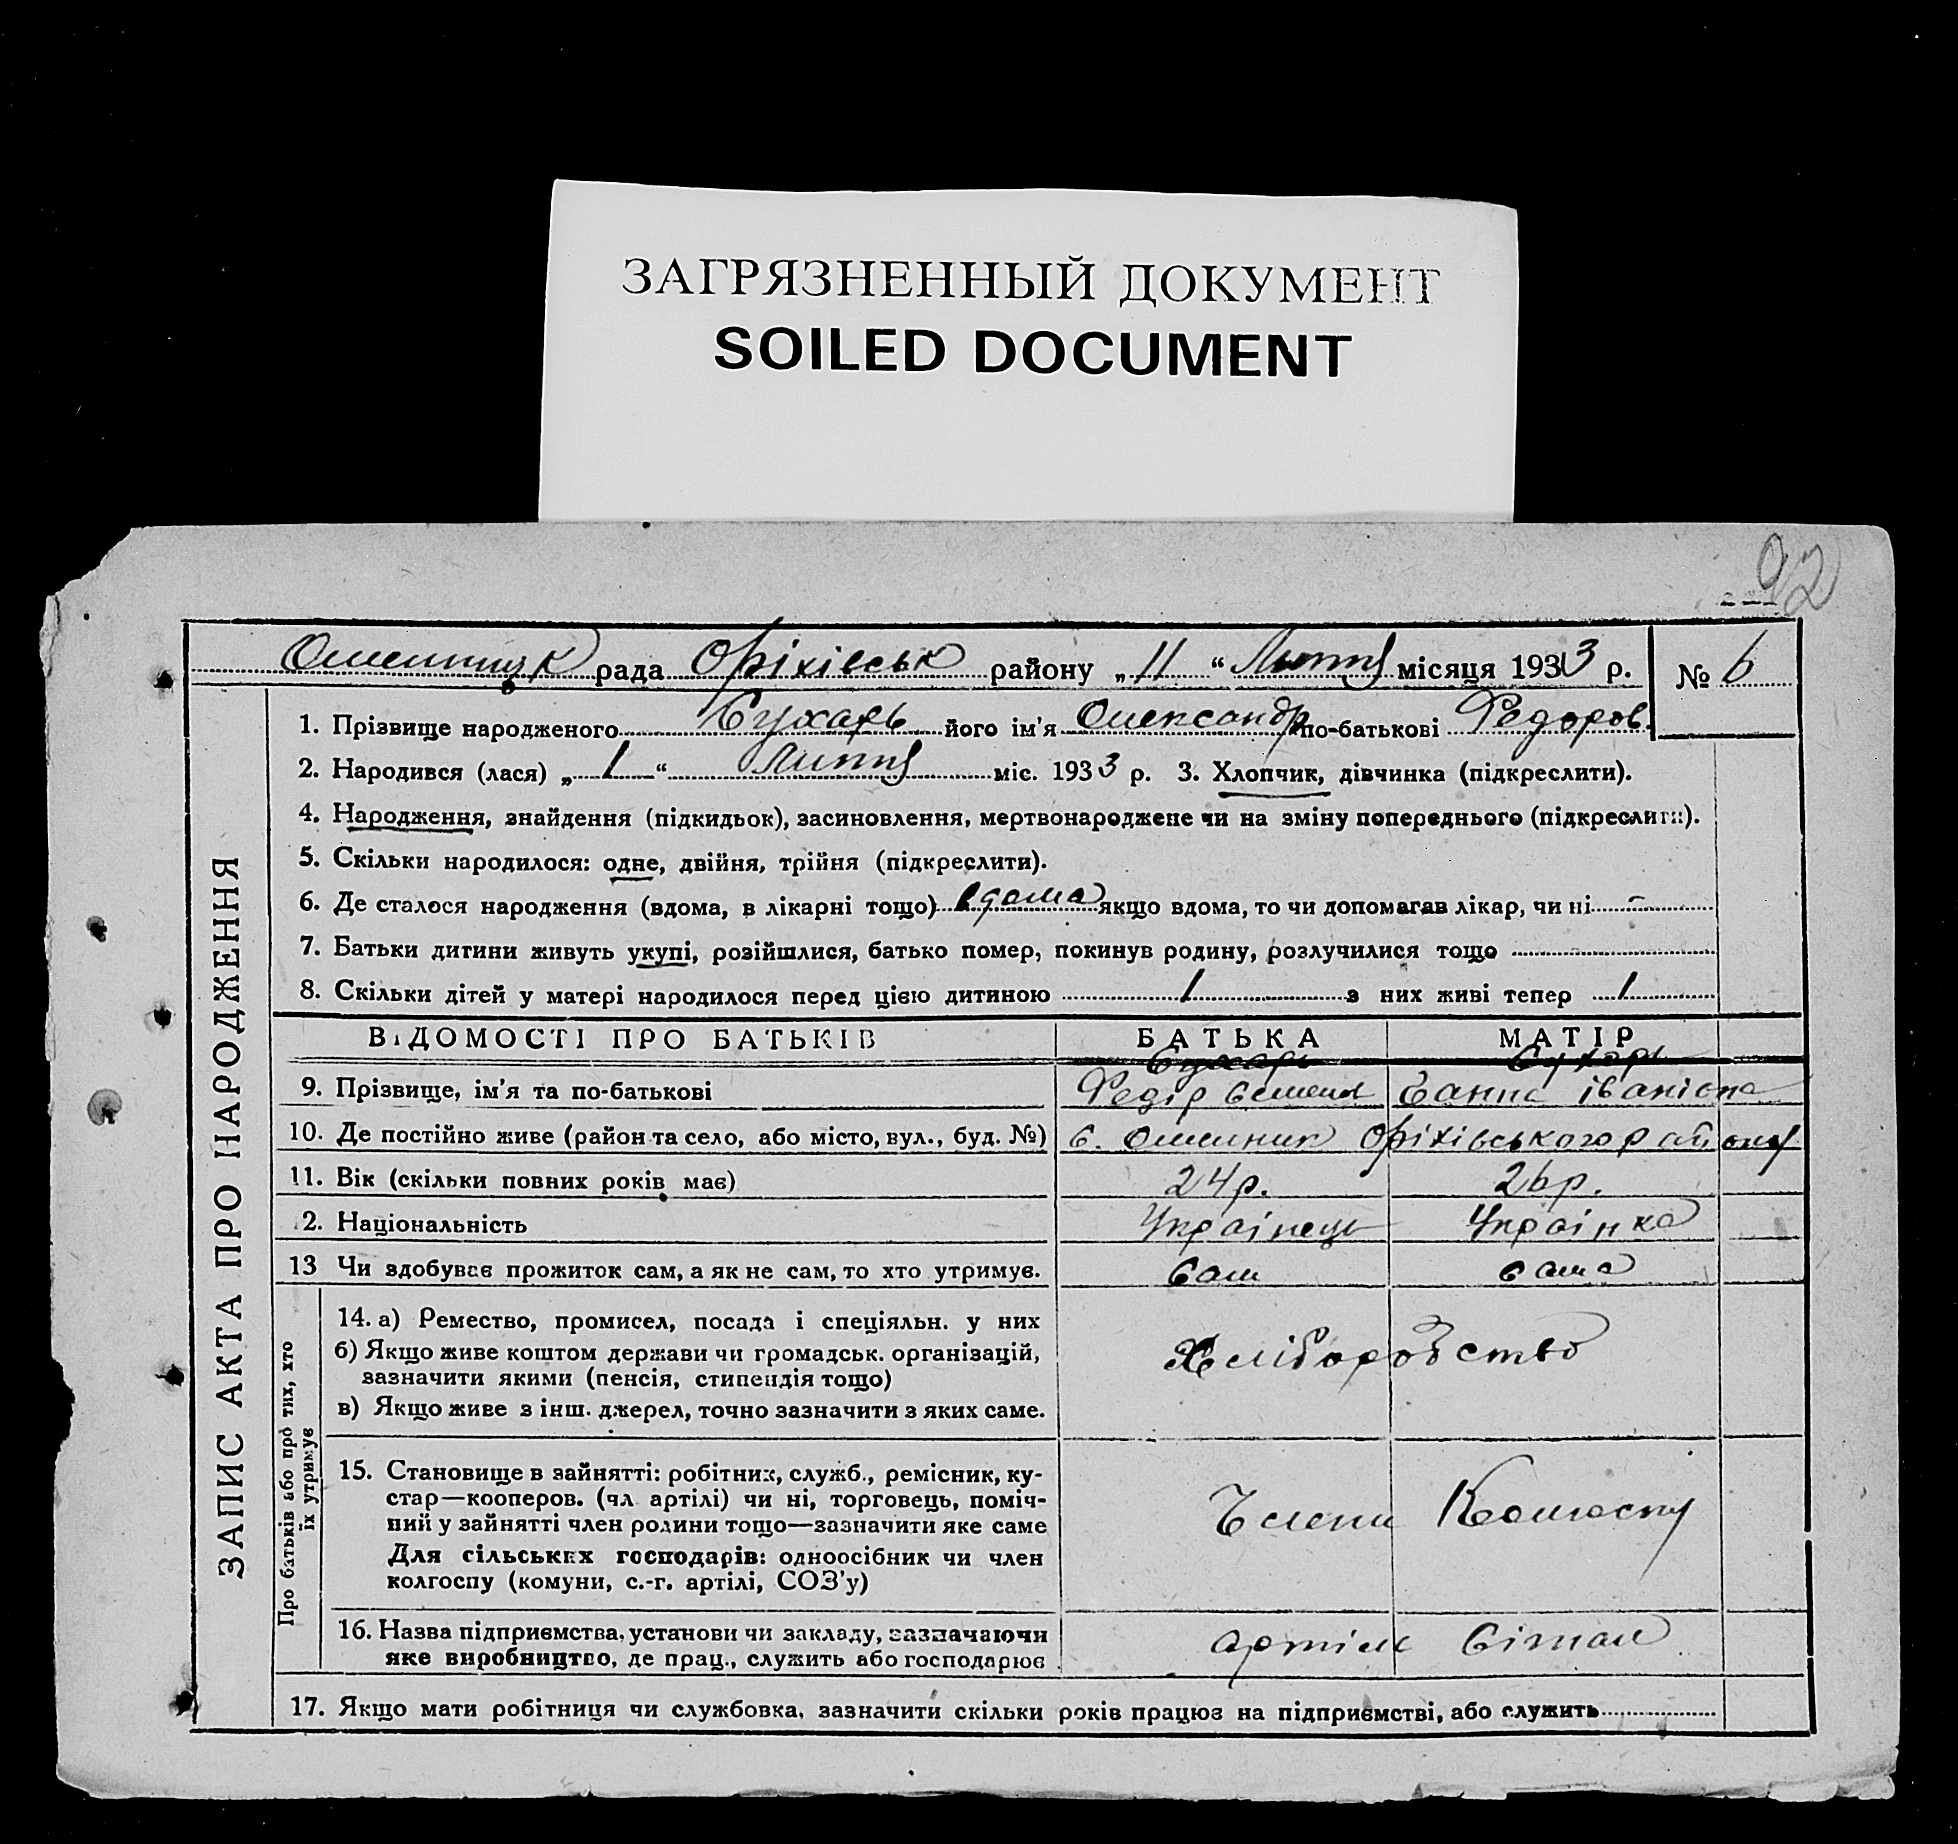 ЗАГРЯЗНЕННЫЙ ДОКУМЕНТ
SOILED DOCUMENT
92
рада Оріхівськ району „11“ Липня місяця 1933 р. № 6
ЗАПИС АКТА ПРО НАРОДЖЕННЯ
1. Прізвище народженого Сухарь його ім'я Олександр по-батькові Федоров.
2. Народився (лася) „1“ Липня міс. 1933 р. 3. Хлопчик, дівчинка (підкреслити).
4. Народження, знайдення (підкидьок), засиновлення, мертвонароджене чи на зміну попереднього (підкреслити).
5. Скільки народилося: одне, двійня, трійня (підкреслити).
6. Де сталося народження (вдома, в лікарні тощо) вдома якщо вдома, то чи допомагав лікар, чи ні –
7. Батьки дитини живуть укупі, розійшлися, батько помер, покинув родину, розлучилися тощо
8. Скільки дітей у матері народилося перед цією дитиною 1 з них живі тепер 1
ВІДОМОСТІ ПРО БАТЬКІВ БАТЬКА МАТІР
Сухарь Сухарь
9. Прізвище, ім'я та по-батькові Федір Семенов Ганна Іванівна
10. Де постійно живе (район та село, або місто, вул., буд. №) с. Омельник Оріхівського району
11. Вік (скільки повних років має) 24 р. 26 р.
12. Національність Українець Українка
13 Чи здобуває прожиток сам, а як не сам, то хто утримує. Сам сама
Про батьків або про тих, хто їх утримує
14. а) Ремество, промисел, посада і спеціяльн. у них
б) Якщо живе коштом держави чи громадськ. організацій,
зазначити якими (пенсія, стипендія тощо) Хліборобство
в) Якщо живе з інш. джерел, точно зазначити з яких саме.
15. Становище в зайнятті: робітник, служб., ремісник, ку-
стар—кооперов. (чл артілі) чи ні, торговець, поміч-
ний у зайнятті член родини тощо—зазначити яке саме Члени Колгоспу
Для сільських господарів: одноосібник чи член
колгоспу (комуни, с.-г. артілі, СОЗ'у)
16. Назва підприємства, установи чи закладу, зазначаючи
яке виробництво, де прац., служить або господарює
17. Якщо мати робітниця чи службовка, зазначити скільки років працює на підприємстві, або служить